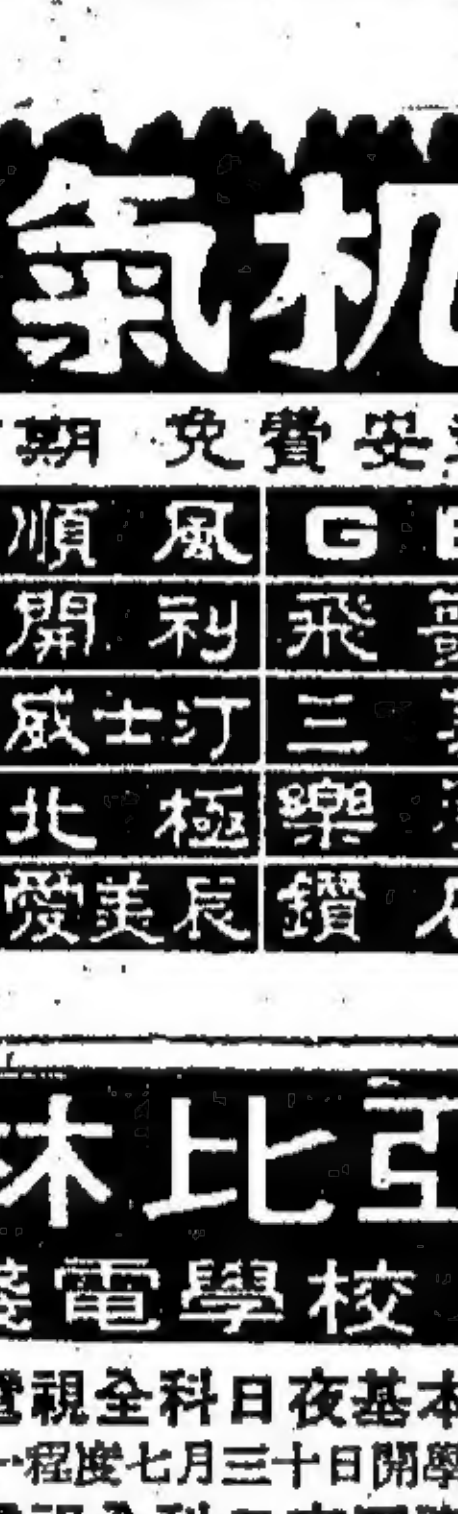 氣机
期 免費安
順風 G
開利 飛
威士汀 三
北極 樂
愛美辰 鑽
林比亞
電學校
電視全科日夜基本
程度七月三十日開學